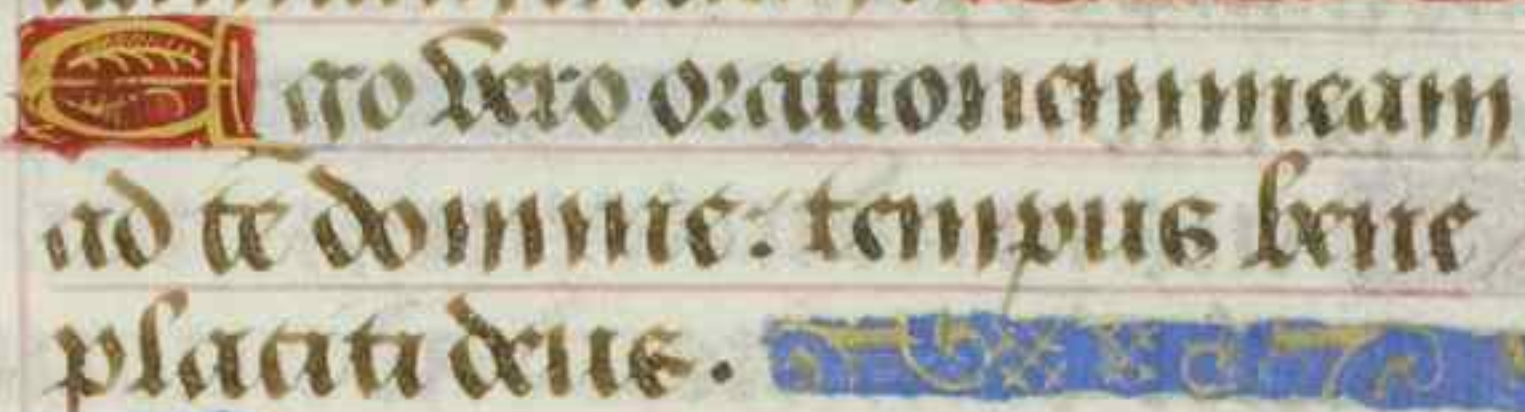 Ego vero orationem meam
ad te domine: tempus bene
placiti deus.